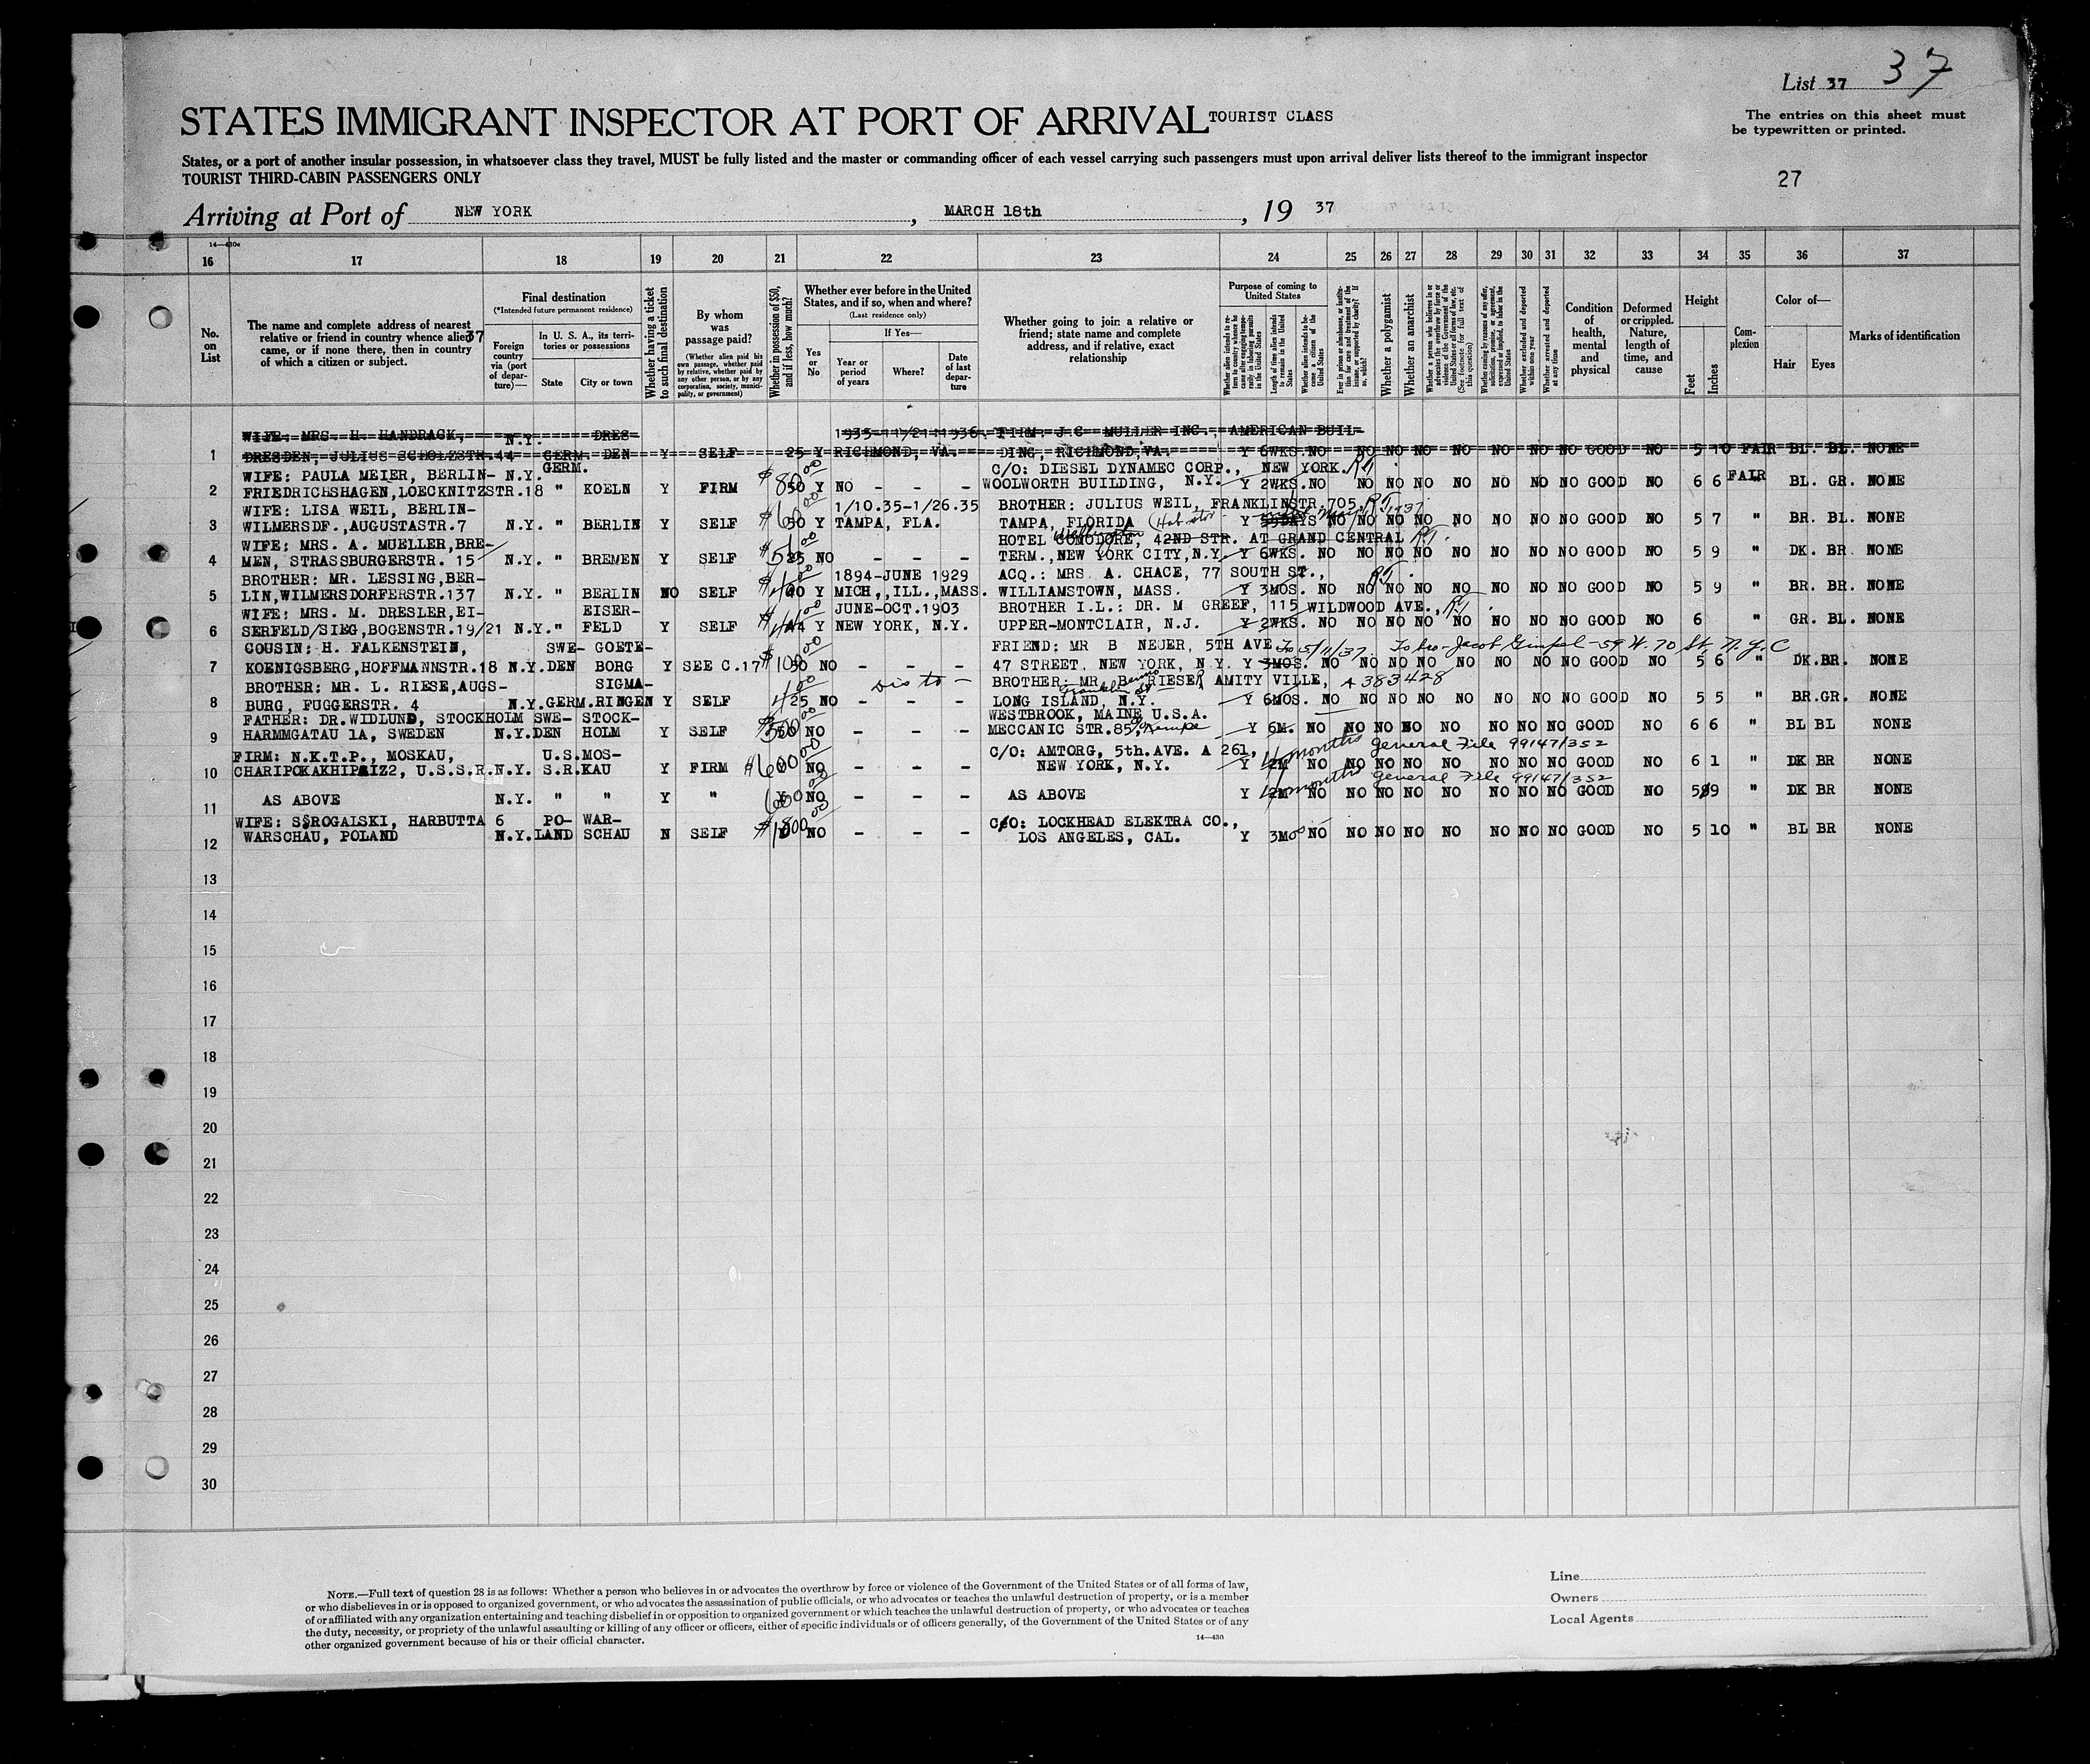 List 37 37
STATES IMMIGRANT INSPECTOR AT PORT OF ARRIVAL TOURIST CLASS
The entries on this sheet must
be typewritten or printed.
States, or a port of another insular possession, in whatsoever class they travel, MUST be fully listed and the master or commanding officer of each vessel carrying such passengers must upon arrival deliver lists thereof to the immigrant inspector
TOURIST THIRD-CABIN PASSENGERS ONLY
27
Arriving at Port of NEW YORK, MARCH 18th, 19 37
14—430e
16 17 18 19 20 21 22 23 24 25 26 27 28 29 30 31 32 33 34 35 36 37
No. on List
The name and complete address of nearest relative or friend in country whence alien 37 came, or if none there, then in country of which a citizen or subject.
Final destination
(*Intended future permanent residence)
Foreign country via (port of departure)—
In U. S. A., its territories or possessions
State
City or town
Whether having a ticket to such final destination
By whom was passage paid?
(Whether alien paid his own passage, whether paid by relative, whether paid by any other person, or by any corporation, society, municipality, or government)
Whether in possession of $50, and if less, how much?
Whether ever before in the United States, and if so, when and where?
(Last residence only)
Yes or No
If Yes—
Year or period of years
Where?
Date of last departure
Whether going to join a relative or friend; state name and complete address, and if relative, exact relationship
Purpose of coming to United States
Whether alien intends to return to country whence he came after engaging temporarily in laboring pursuits in the United States
Length of time alien intends to remain in the United States
Whether alien intends to become a citizen of the United States
Ever in prison or almshouse, or institution for care and treatment of the insane, or supported by charity? If so, which?
Whether a polygamist
Whether an anarchist
Whether a person who believes in or advocates the overthrow by force or violence of the Government of the United States or all forms of law, etc. (See footnote for full text of this question)
Whether coming by reason of any offer, solicitation, promise, or agreement, expressed or implied, to labor in the United States
Whether excluded and deported within one year
Whether arrested and deported at any time
Condition of health, mental and physical
Deformed or crippled. Nature, length of time, and cause
Height
Feet
Inches
Complexion
Color of—
Hair
Eyes
Marks of identification
WIFE: MRS. H. HANDRACK, N.Y. DRES- 1935-11/21 1936. FIRM: J.C. MULLER INC., AMERICAN BUIL-
1 DRESDEN, JULIUS SCHOLZSTR.44 GERM. DEN Y SELF 25 Y RICHMOND, VA. DING, RICHMOND, VA. Y 6WKS. NO NO NO NO NO NO NO NO GOOD NO 5 10 FAIR BL. BL. NONE
WIFE: PAULA MEIER, BERLIN- N.Y. GERM. C/O: DIESEL DYNAMEC CORP., NEW YORK.
2 FRIEDRICHSHAGEN, LOECKNITZSTR.18 " KOELN Y FIRM $80.00 50 Y NO - - - WOOLWORTH BUILDING, N.Y. Y 2WKS. NO NO NO NO NO NO NO NO GOOD NO 6 6 FAIR BL. GR. NONE
WIFE: LISA WEIL, BERLIN- 1/10.35-1/26.35 BROTHER: JULIUS WEIL, FRANKLINSTR.705,
3 WILMERSDF., AUGUSTASTR.7 N.Y. " BERLIN Y SELF 50 Y TAMPA, FLA. TAMPA, FLORIDA Y DAYS NO NO NO NO NO NO NO NO GOOD NO 5 7 " BR. BL. NONE
WIFE: MRS. A. MUELLER, BRE- HOTEL COMODORE, 42ND STR. AT GRAND CENTRAL
4 MEN, STRASSBURGERSTR. 15 N.Y. " BREMEN Y SELF 25 NO - - - TERM., NEW YORK CITY, N.Y. Y 6WKS. NO NO NO NO NO NO NO NO GOOD NO 5 9 " DK. BR NONE
BROTHER: MR. LESSING, BER- 1894-JUNE 1929 ACQ.: MRS. A. CHACE, 77 SOUTH ST.,
5 LIN, WILMERSDORFERSTR.137 N.Y. " BERLIN NO SELF 40 Y MICH,,ILL.,MASS. WILLIAMSTOWN, MASS. Y 3MOS. NO NO NO NO NO NO NO NO GOOD NO 5 9 " BR. BR. NONE
WIFE: MRS. M. DRESLER, EI- EISER- JUNE-OCT.1903 BROTHER I.L.: DR. M GREEF, 115 WILDWOOD AVE.,
6 SERFELD/SIEG, BOGENSTR.19/21 N.Y. " FELD Y SELF Y NEW YORK, N.Y. UPPER-MONTCLAIR, N.J. Y 2WKS. NO NO NO NO NO NO NO NO GOOD NO 6 " GR. BL. NONE
COUSIN: H. FALKENSTEIN, SWE- GOETE- FRIEND: MR B NEUER, 5TH AVE To 5/11/37. To bro- Jacob Gimpel - 59 W. 70 St. N.Y.C
7 KOENIGSBERG, HOFFMANNSTR.18 N.Y. DEN BORG Y SEE C.17 $100.00 50 NO - - - 47 STREET, NEW YORK, N Y. Y 3MOS. NO NO NO NO NO NO NO NO GOOD NO 5 6 " DK. BR. NONE
BROTHER: MR. L. RIESE, AUGS- SIGMA- BROTHER: MR. B. RIESER AMITY VILLE, A 383428
8 BURG, FUGGERSTR. 4 N.Y. GERM. RINGEN Y SELF 25 NO - - - LONG ISLAND, N.Y. Y 6MOS. NO NO NO NO NO NO NO NO GOOD NO 5 5 BR. GR. NONE
FATHER: DR. WIDLUND, STOCKHOLM SWE- STOCK- WESTBROOK, MAINE U.S.A.
9 HARMMGATAU 1A, SWEDEN N.Y. DEN HOLM Y SELF NO - - - MECCANIC STR.85, Y 6M. NO NO NO NO NO NO NO NO GOOD NO 6 6 " BL BL NONE
FIRM: N.K.T.P., MOSKAU, U.S. MOS- C/O: AMTORG, 5th. AVE. A 261, months General File 99147/352
10 CHARIPOKAKHIPAIZ2, U.S.S.R. N.Y. S.R. KAU Y FIRM NO - - - NEW YORK, N.Y. Y 2M NO NO NO NO NO NO NO NO GOOD NO 6 1 " DK BR NONE
months General File 99147/352
11 AS ABOVE N.Y. " " Y " NO - - - AS ABOVE Y 2M NO NO NO NO NO NO NO NO GOOD NO 5 9 " DK BR NONE
WIFE: SSROGAISKI, HARBUTTA 6 PO- WAR- C/O: LOCKHEAD ELEKTRA CO.,
12 WARSCHAU, POLAND N.Y. LAND SCHAU N SELF NO - - - LOS ANGELES, CAL. Y 3MOS NO NO NO NO NO NO NO NO GOOD NO 5 10 " BL BR NONE
13
14
15
16
17
18
19
20
21
22
23
24
25
26
27
28
29
30
NOTE.—Full text of question 28 is as follows: Whether a person who believes in or advocates the overthrow by force or violence of the Government of the United States or of all forms of law,
or who disbelieves in or is opposed to organized government, or who advocates the assassination of public officials, or who advocates or teaches the unlawful destruction of property, or is a member
of or affiliated with any organization entertaining and teaching disbelief in or opposition to organized government or which teaches the unlawful destruction of property, or who advocates or teaches
the duty, necessity, or propriety of the unlawful assaulting or killing of any officer or officers, either of specific individuals or of officers generally, of the Government of the United States or of any
other organized government because of his or their official character.
14—430
Line
Owners
Local Agents